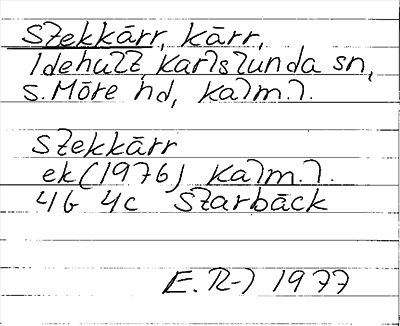 Stekkärr, kärr,
Idehult, Karlslunda sn,
S. Möre hd, Kalm. l.
Stekkärr
ek (1976) Kalm. l.
4G 4c Starbäck
E. R-) 1977